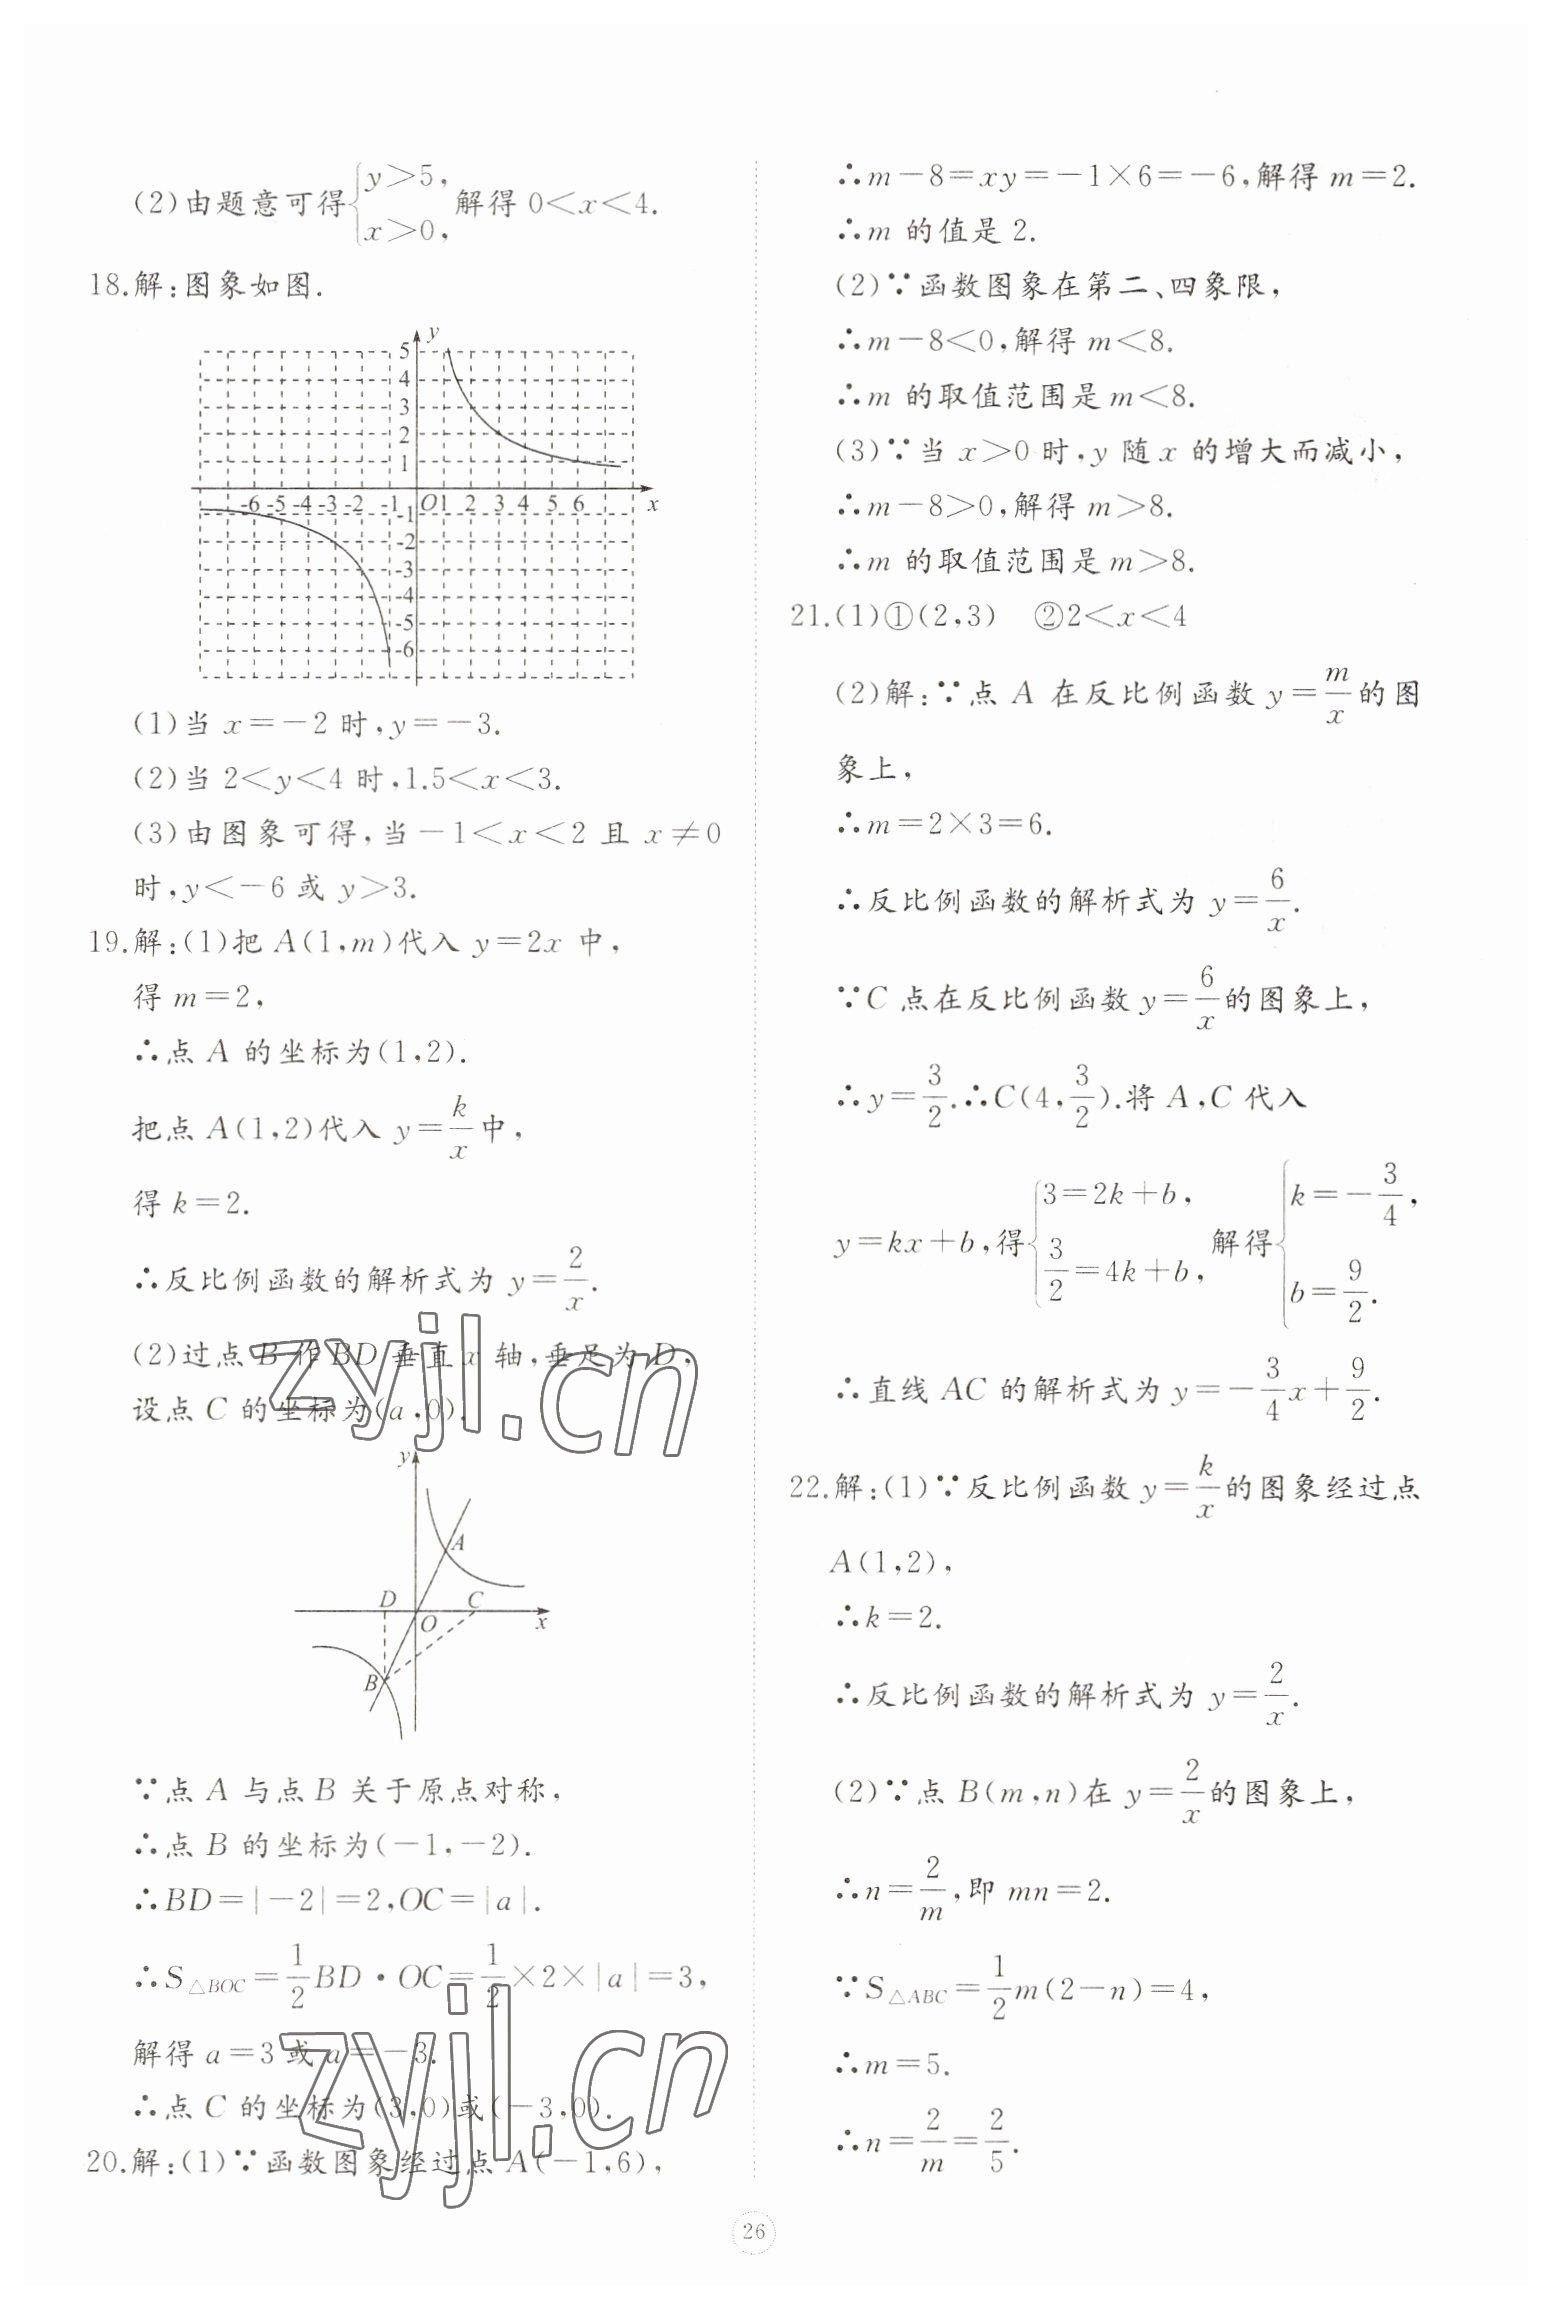 (2)由题意可得{y>5, x>0, 解得 0<x<4.
18.解:图象如图.
y
5
4
3
2
1
-6 -5 -4 -3 -2 -1 O 1 2 3 4 5 6 x
-1
-2
-3
-4
-5
-6
(1)当 x=-2 时,y=-3.
(2)当 2<y<4 时,1.5<x<3.
(3)由图象可得,当-1<x<2 且 x≠0
时,y<-6 或 y>3.
19.解:(1)把 A(1,m)代入 y=2x 中,
得 m=2,
∴点 A 的坐标为(1,2).
把点 A(1,2)代入 y=k/x中,
得 k=2.
∴反比例函数的解析式为 y=2/x.
(2)过点 B 作 BD 垂直 x 轴,垂足为 D,
设点 C 的坐标为(a,0).
zyjl.cn
y
A
D C
O x
B
∵点 A 与点 B 关于原点对称,
∴点 B 的坐标为(-1,-2).
∴BD=|-2|=2,OC=|a|.
∴S△BOC=1/2BD·OC=1/2×2×|a|=3,
解得 a=3 或 a=-3.
∴点 C 的坐标为(3,0)或(-3,0).
zyjl.cn
20.解:(1)∵函数图象经过点 A(-1,6),
∴m-8=xy=-1×6=-6,解得 m=2.
∴m 的值是 2.
(2)∵函数图象在第二、四象限,
∴m-8<0,解得 m<8.
∴m 的取值范围是 m<8.
(3)∵当 x>0 时,y 随 x 的增大而减小,
∴m-8>0,解得 m>8.
∴m 的取值范围是 m>8.
21.(1)①(2,3) ②2<x<4
(2)解:∵点 A 在反比例函数 y=m/x的图
象上,
∴m=2×3=6.
∴反比例函数的解析式为 y=6/x.
∵C 点在反比例函数 y=6/x的图象上,
∴y=3/2.∴C(4,3/2).将 A,C 代入
y=kx+b,得{3=2k+b, 3/2=4k+b, 解得{k=-3/4, b=9/2.
∴直线 AC 的解析式为 y=-3/4x+9/2.
22.解:(1)∵反比例函数 y=k/x的图象经过点
A(1,2),
∴k=2.
∴反比例函数的解析式为 y=2/x.
(2)∵点 B(m,n)在 y=2/x的图象上,
∴n=2/m,即 mn=2.
∵S△ABC=1/2m(2-n)=4,
∴m=5.
∴n=2/m=2/5.
26